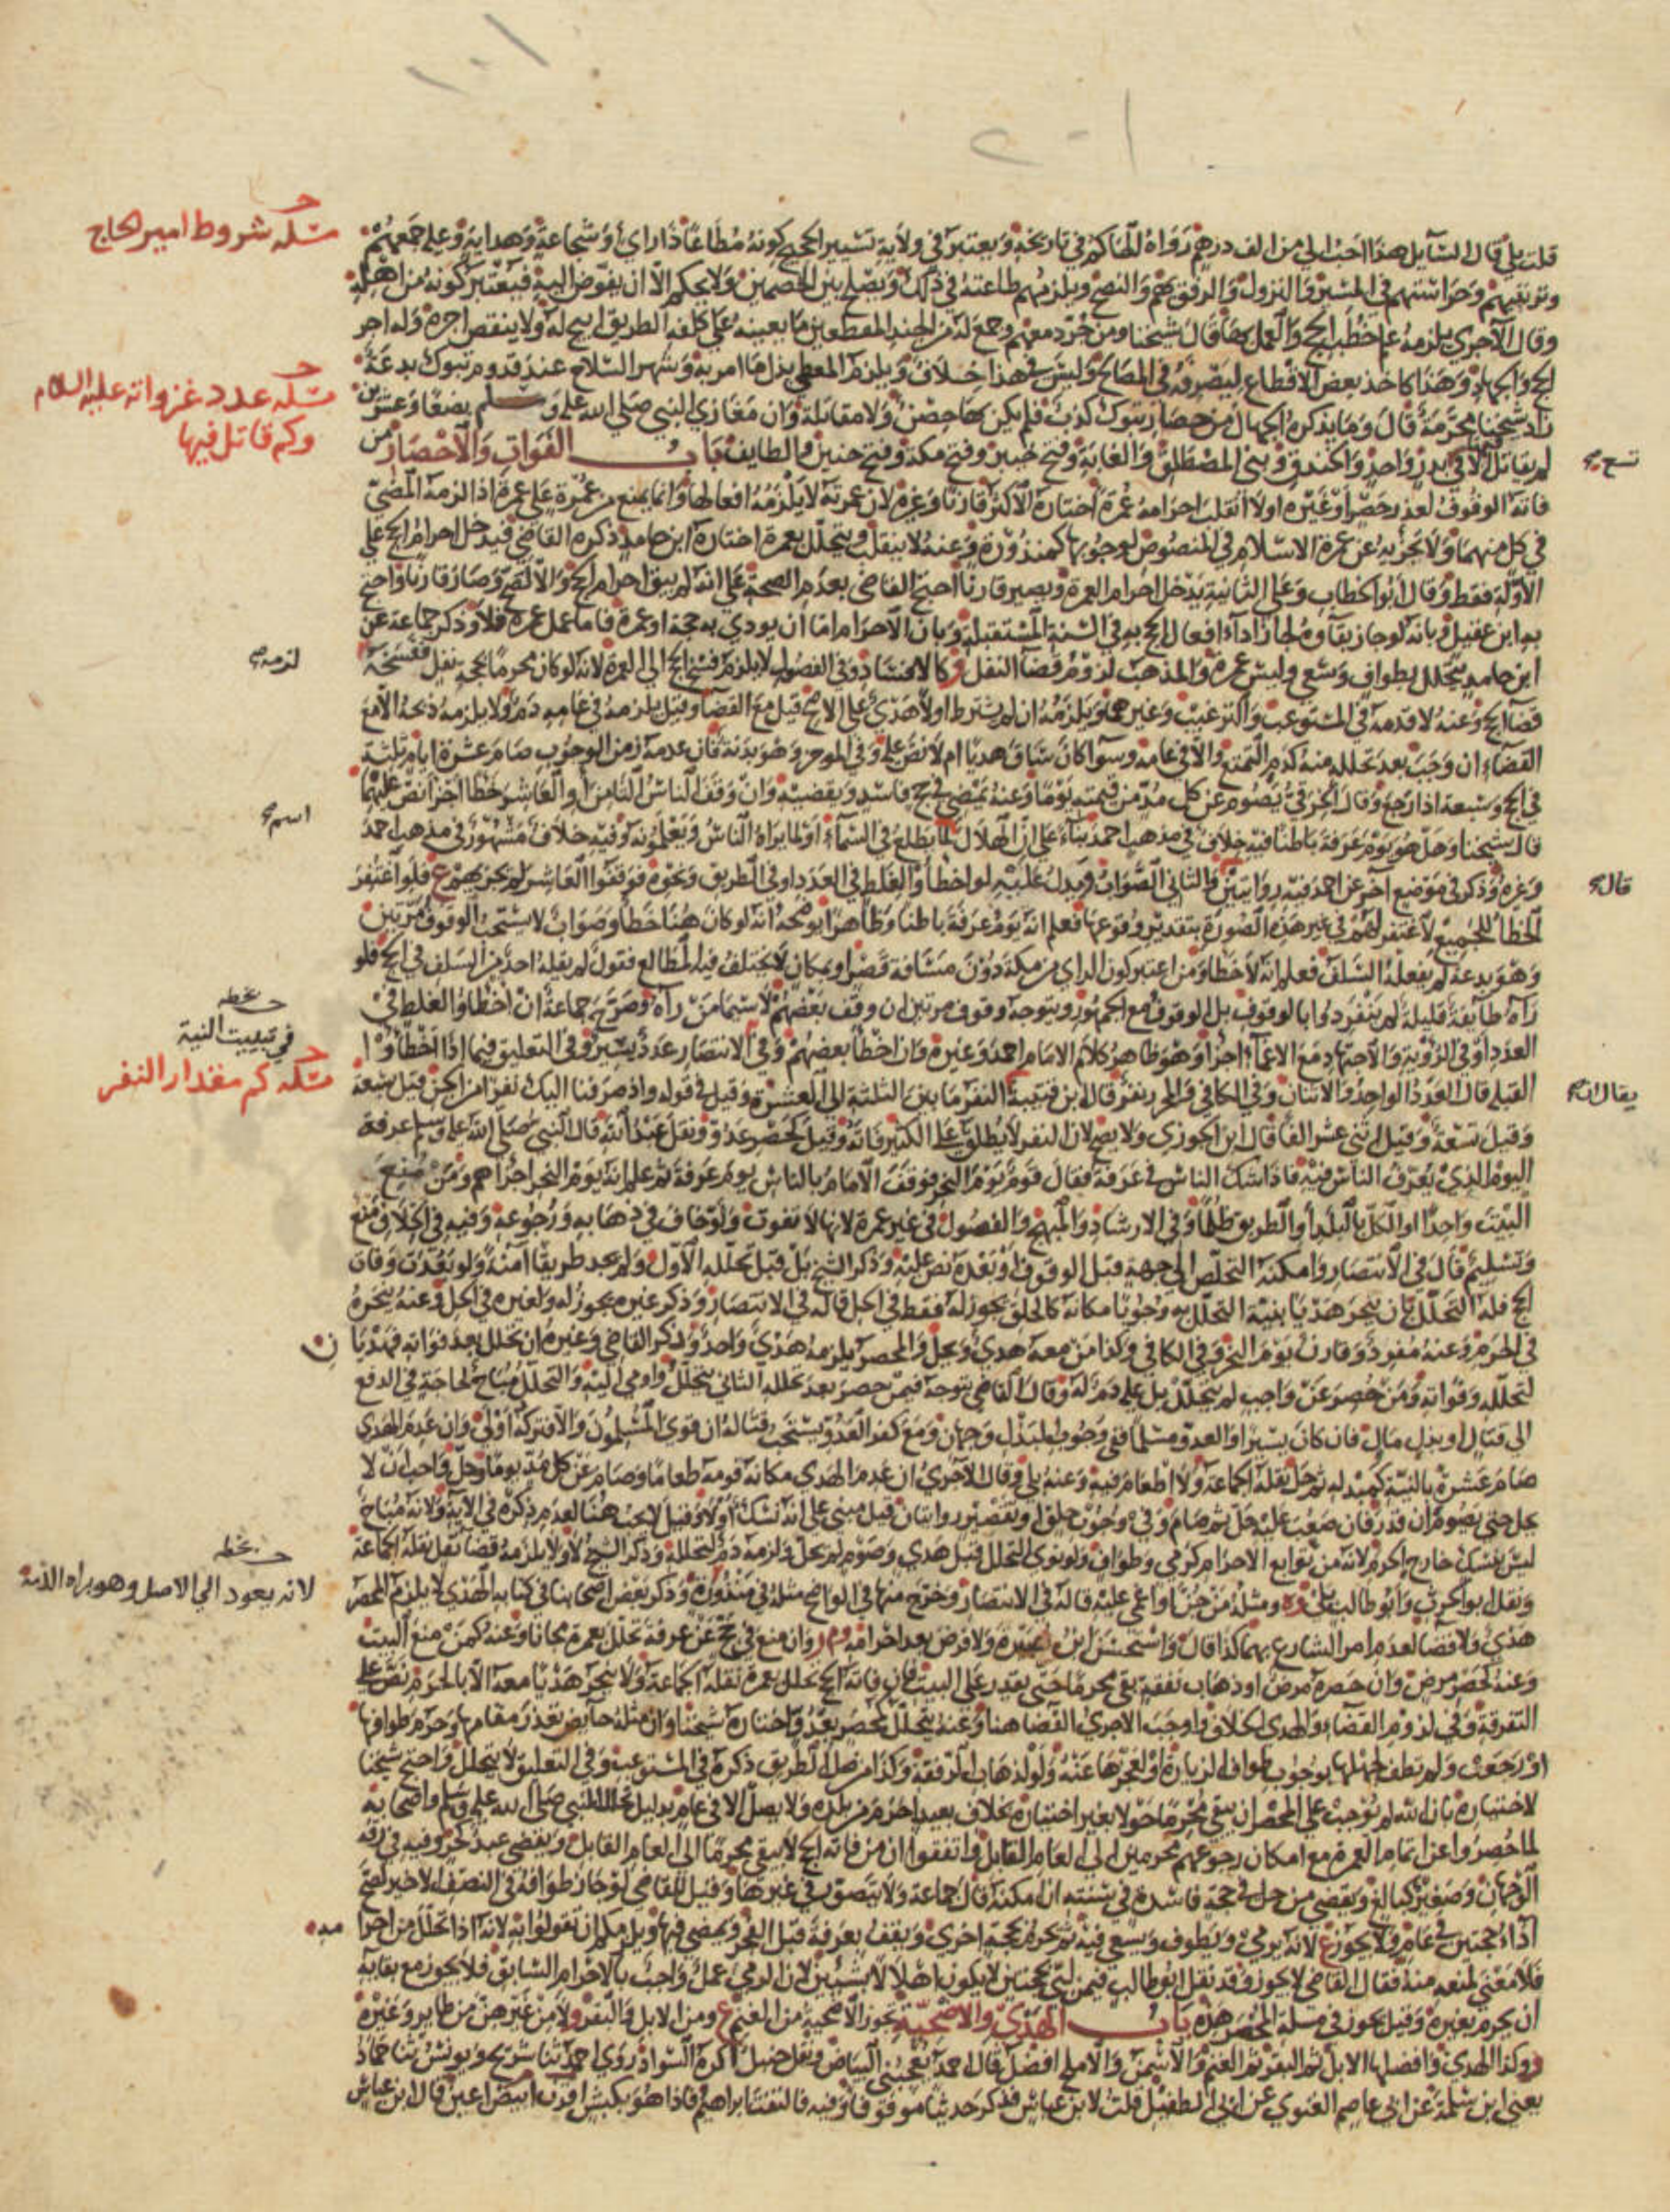 مسئلة شروط امير الحاج
مسئلة عدد غزواته عليه السلام
وكم قاتل فيها
قلت بلى قال السايل هذا احب الي من الف درهم رواه الحاكم في تاريخه ويعتبر في ولاية تسيير الحجيج كونه مطاعا ذا راي وشجاعة وهداية وعليه جمعهم
وترتيبهم وحراستهم في المسير والنزول والرفق بهم والنصح ويلزمهم طاعته في ذلك ويصلح بين الخصمين ولا يحكم الا ان يفوض اليه فيعتبر كونه من اهله
وقال الآجري يلزمه علم خطب الحج والعمل بها قال شيخنا ومن جرد معهم وجمع له من الجند المقطعين ما يعينه على كلفة الطريق ابيح له ولا ينقص اجره وله اجر
الحج والجهاد وهذا كاخذ بعض الاقطاع ليصرفه في المصالح وليس في هذا خلاف ويلزم المعطي بذل ما امر به وشهر السلاح عند قدوم تبوك بدعة
زاد شيخنا محرمة قال وما يذكره الجهال من حصار تبوك كذب فلم يكن بها حصن ولا مقاتلة وان مغازي النبي صلى الله عليه وسلم بضعا وعشرين
لم يقاتل فيها الا في بدر واحد والخندق وبني المصطلق والغابة وفتح خيبر وفتح مكة وفتح حنين والطايف باب الفوات والاحصار من
تسع
فاته الوقوف لعذر حصر او غيره او لا انقلب احرامه عمرة اختاره الاكثر قارنا وغيره لان عمرته لا يلزمه افعالها وانما يمنع من عمرة على عمرة اذا لزمه المضي
في كل منهما ولا يجزيه عن عمرة الاسلام في المنصوص لوجوبها كمنذورة وعنه لا ينقلب ويتحلل بعمرة اختاره ابن حامد ذكره القاضي فيدخل احرام الحج على
الاولة فقط وقال ابو الخطاب وعلى الثانية يدخل احرام العمرة ويصير قارنا احتج القاضي بعدم الصحة على انه لم يبق احرام الحج والا لصح وصار قارنا واحتج
به ابن عقيل وبانه لو جاز بقاوه لجاز اداء افعال الحج به في السنة المستقبلة وبان الاحرام اما ان يودي به حجة او عمرة فاما عمل عمرة فلا وذكر جماعة عن
ابن حامد يتحلل بطواف وسعي وليس عمرة والمذهب لزوم قضا النفل كالافساد وفي الفصول لا يلزم فسخ الحج الى العمرة لانه لو كان محرما بحجة نفل ففسخه
لزمه
قضا الحج وعنه لا قدمه في المستوعب والترغيب وغيرهما ويلزمه ان لم يشترط اولا هدي على الاصح قيل مع القضا وقيل يلزمه في عامه دم ولا يلزمه ذبحه الا مع
القضاء ان وجب بعد تحلله منه كدم التمتع والا في عامه وسوا كان ساق هديا ام لا نص عليه وفي الموجز وهو بدنة فان عدمه زمن الوجوب صام عشرة ايام ثلثة
في الحج وسبعة اذا رجع وقال الخرقي يصوم عن كل مد من قيمته يوما وعنه يمضي في حج فاسد ويقضيه وان وقف الناس الثامن او العاشر خطا اجزا نص عليهما
اسم
قال شيخنا وهل هو يوم عرفة باطنا فيه خلاف في مذهب احمد بناء على ان الهلال لما يطلع في السماء او لما يراه الناس ويعلمونه وفيه خلاف مشهور في مذهب احمد
وغيره وذكر في موضع آخر عن احمد فيه روايتين والثاني الصواب ويدل عليه لو اخطأ والغلط في العدد او في الطريق ونحوه فوقفوا العاشر لم يجزيهم ع فلو اغتفر
قال
الخطا للجميع لاغتفر لهم في غير هذه الصورة بتقدير وقوعها فعلم انه يوم عرفة باطنا وظاهرا يوضحه انه لو كان هنا خطا وصواب لاستحب الوقوف مرتين
وهو بدعة لم يفعله السلف فعلم انه لا خطا ومن اعتبر كون الراي من مكة دون مسافة قصر او بمكان لا يختلف فيه المطالع فقول لم يقله احد من السلف في الحج فلو
رآه طايفة قليلة لم ينفردوا بالوقوف بل الوقوف مع الجمهور ويتوجه وقوف مرتين ان وقف بعضهم لا سيما من رآه وصرح جماعة ان اخطاوا الغلط في
بخطه
في تبييت النية
العدد او في الرؤية والاجتهاد مع الاغماء اجزا وهو ظاهر كلام الامام احمد وغيره وان اخطأ بعضهم وفي الانتصار عدد يسير وفي التعليق فيما اذا اخطاوا
مسئلة كم مقدار النفر
القبلة قال العدد الواحد والاثنان وفي الكافي والمحرر نفر قال ابن قتيبة النفر ما بين الثلثة الى العشرة وقيل في قوله واذ صرفنا اليك نفرا من الجن قيل سبعة
يقال ان
وقيل تسعة وقيل اثني عشر الفا قال ابن الجوزي ولا يصح لان النفر لا يطلق على الكثير فانه وقيل كحصر عدو ونقل عبد الله قال النبي صلى الله عليه وسلم عرفة
اليوم الذي يعرف الناس فيه فاذا شك الناس في عرفة فقال قوم يوم النحر فوقف الامام بالناس يوم عرفة ثم علم انه يوم النحر اجزاهم ومن منع
البيت واحدا او الكل بالبلد او الطريق ظلما وفي الارشاد والمبهج والفصول في غير عمرة لانها لا تفوت ولو خاف في ذهابه ورجوعه وفيه في الخلاف منع
وتسليم قال في الانتصار وامكنه التخلص الى جهة قبل الوقوف او بعده نص عليه وذكر الشيخ بل قبل تحلله الاول ولم يجد طريقا آمنة ولو بعدت وفات
الحج فله التحلل بان ينحر هديا بنية التحلل به وجوبا مكانه كالحلق يجوز له فقط في الحل قاله في الانتصار وذكر غيره يجوز له ولغيره في الحل وعنه ينحره
في الحرم وعنه مفرد وقارن يوم النحر وفي الكافي وكذا من معه هدي ويحل والمحصر يلزمه هدي واحد وذكر القاضي وغيره ان تحلل بعد فواته فهديان
لتحلله وفواته ومن حصر عن واجب لم يتحلل بل عليه دم له وقال القاضي يتوجه فيمن حصر بعد تحلله الثاني يتحلل واومى اليه والتحلل مباح لحاجة في الدفع
الى قتال او بذل مال فان كان يسيرا والعدو مسلما ففي وجوب البذل وجهان ومع كفر العدو يستحب قتاله ان قوي المسلمون والا فتركه اولى وان عدم الهدي
صام عشرة بالنية كمبدله ثم حل نقله الجماعة ولا اطعام فيه وعنه بلى وقال الآجري ان عدم الهدي مكانه قومه طعاما وصام عن كل مد يوما وحل واحب ان لا
يحل حتى يصوم ان قدر فان صعب عليه حل ثم صام وفي وجوب حلق او تقصير روايتان قيل مبني على انه نسك او لا وقيل لا يجب هنا لعدم ذكره في الآية ولانه مباح
ليس بنسك خارج الحرم لانه من توابع الاحرام كرمي وطواف ولو نوى التحلل قبل هدي وصوم لم يحل ولزمه دم لتحلله وذكر الشيخ لا ولا يلزمه قضا نفل نقله الجماعة
بخطه
لانه يعود الى الاصل وهو براءة الذمة
ونقل ابو الحرث وابو طالب بلى ومثله من جن او اغمي عليه قاله في الانتصار وخرج منها في الواضح مثله في منذورة وذكر بعض اصحابنا في كتابه الهدي لا يلزم المحصر
هدي ولا قضا لعدم امر الشارع بهما كذا قال واستحسن ابن ولا فرض بعد احرامه وان منع في حج عن عرفة تحلل بعمرة مجانا وعنه كمن منع البيت
وعنه كحصر مرض وان حصره مرض او ذهاب نفقة بقي محرما حتى يقدر على البيت فان فاته الحج تحلل بعمرة نقله الجماعة ولا ينحر هديا معه الا بالحرم نص على
التفرقة وفي لزوم القضاء والهدي الخلاف واوجب الآجري القضا هنا وعنه يتحلل كمحصر بعدو واختاره شيخنا وان مثله حايض تعذر مقامها وحرم طوافها
او رجعت ولم تطف لجهلها بوجوب طواف الزيارة او لعجزها عنه ولو لذهاب الرفقة وكذا من ضل الطريق ذكره في المستوعب وفي التعليق لا يتحلل واحتج شيخنا
لاختياره بان الله لم يوجب على المحصر ان يبقى محرما حولا بغير اختياره بخلاف بعيد احرم من بلده ولا يصل الا في عام بدليل تحلل النبي صلى الله عليه وسلم واصحابه
لما حصروا عن اتمام العمرة مع امكان رجوعهم محرمين الى العام القابل واتفقوا ان من فاته الحج لا يبقى محرما الى العام القابل ويقضي عبد كحر وفيه في رقه
الوجهان وصغير كبالغ ويقضي من حل في حجة فاسدة في سنته ان امكنه قال جماعة ولا يتصور في غيرها وقيل للقاضي لو جاز طوافه في النصف الاخير لصح
اداء حجتين في عام ولا يجوز ع لانه يرمي ويطوف ويسعى فيه ثم يحرم بحجة اخرى ويقف بعرفة قبل الفجر ويمضي فيها ويلزمكم ان تقولوا به لانه اذا تحلل من احرا
مه
فلا معنى لمنعه منه فقال القاضي لا يجوز وقد نقل ابو طالب فيمن لبى بحجتين لا يكون اهلالا بشيئين لان الرمي عمل واجب بالاحرام السابق فلا يجوز مع بقايه
ان يحرم بغيره وقيل يجوز في مسلة المحصر هذه باب الهدي والاضحية تجوز الاضحية من الغنم ع ومن الابل والبقر ولا من غيرهن من طاير وغيره
وكذا الهدي وافضلها الابل ثم البقر ثم الغنم والاسمن والاملح افضل قال احمد يعجبني البياض ونقل حنبل اكره السواد روى احمد ثنا سريج ويونس ثنا حماد
يعني ابن سلمة عن ابي عاصم الغنوي عن ابي الطفيل قلت لابن عباس فذكر حديثا موقوفا وفيه فالتفت ابراهيم فاذا هو بكبش اقرن ابيض اعين قال ابن عباس